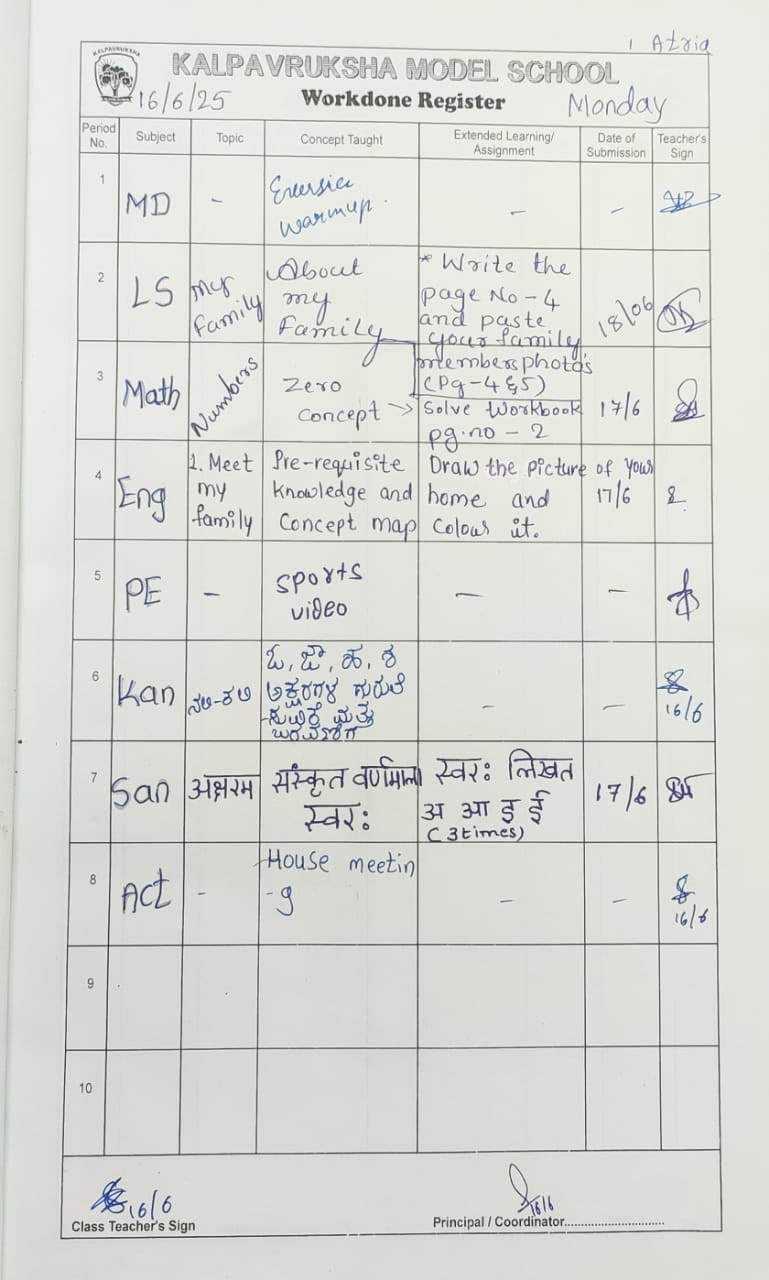 1 Atria
KALPAVRUKSHA
KALPAVRUKSHA MODEL SCHOOL
16/6/25 Workdone Register Monday
Period No. Subject Topic Concept Taught Extended Learning/ Assignment Date of Submission Teacher's Sign
1 MD - Exersice warmup. - -
2 LS My Family About my Family * Write the page No-4 and paste your family members photo's (Pg-4&5) 18/06
3 Math Numbers Zero concept → Solve Workbook pg.no-2 17/6
4 Eng 1. Meet my family Pre-requisite knowledge and Concept map Draw the picture of your home and colour it. 17/6
5 PE - sports video - -
6 Kan ನಲಿ-ಕಲಿ ಓ, ಔ, ಹ, ಠ ಅಕ್ಷರಗಳ ಗುರುತಿಸುವಿಕೆ ಮತ್ತು - - 16/6
7 San अक्षरम संस्कृत वर्णमाला स्वरः स्वरः लिखत अ आ इ ई (3times) 17/6
8 Act - House meetin -g - - 16/6
9
10
16/6 16/6
Class Teacher's Sign Principal / Coordinator